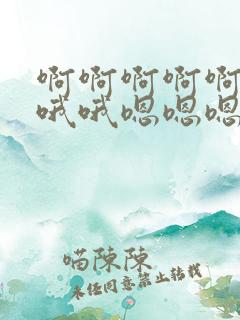 啊啊啊啊啊
哦哦嗯嗯嗯
喵陳陳
未经同意禁止转载